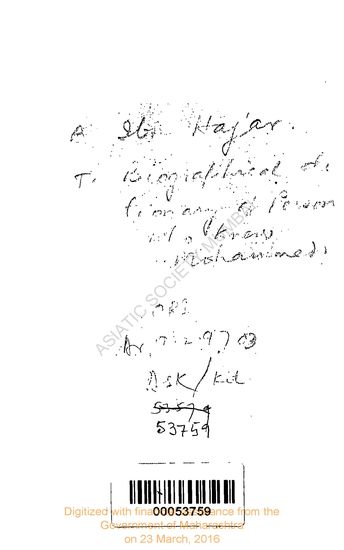 A Ibn Hajar.
T. Biographical dic
tionary of Person
who knew
Mohammed.
ASIATIC SOCIETY MUMBAI
Ask/Kit
53759
00053759
Digitized with financial assistance from the
Government of Maharashtra
on 23 March, 2016